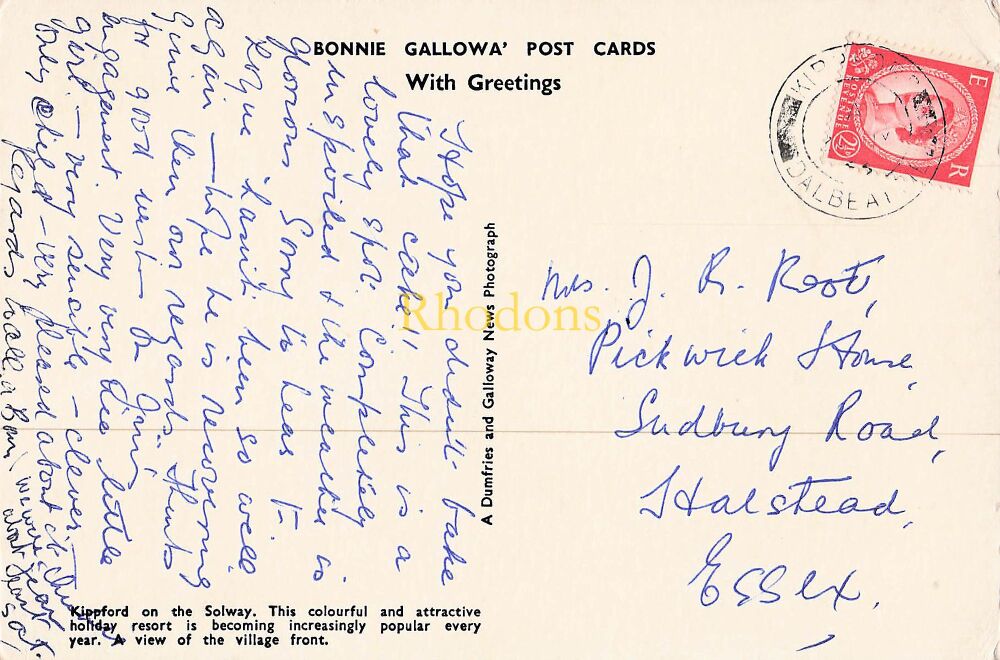 BONNIE GALLOWA' POST CARDS
With Greetings
Hope you didn't bake
that cake!! This is a
lovely spot. Completely
unspoiled & the weather is
glorious. Sorry to hear
hasn't been so well
again – hope he is recovering
Give then our regards. Thanks
for good wishes for Jim's
engagement. Very very nice little
girl – very sensible – clever –
only child – very pleased about it
Regards
A Dumfries and Galloway News Photograph
Rhodons
KIPPFORD
DALBEAT
E R
POSTAGE
REVENUE
2½D
Mrs. J. R. Root,
Pickwick House,
Sudbury Road,
Halstead,
Essex.
Kippford on the Solway. This colourful and attractive
holiday resort is becoming increasingly popular every
year. A view of the village front.